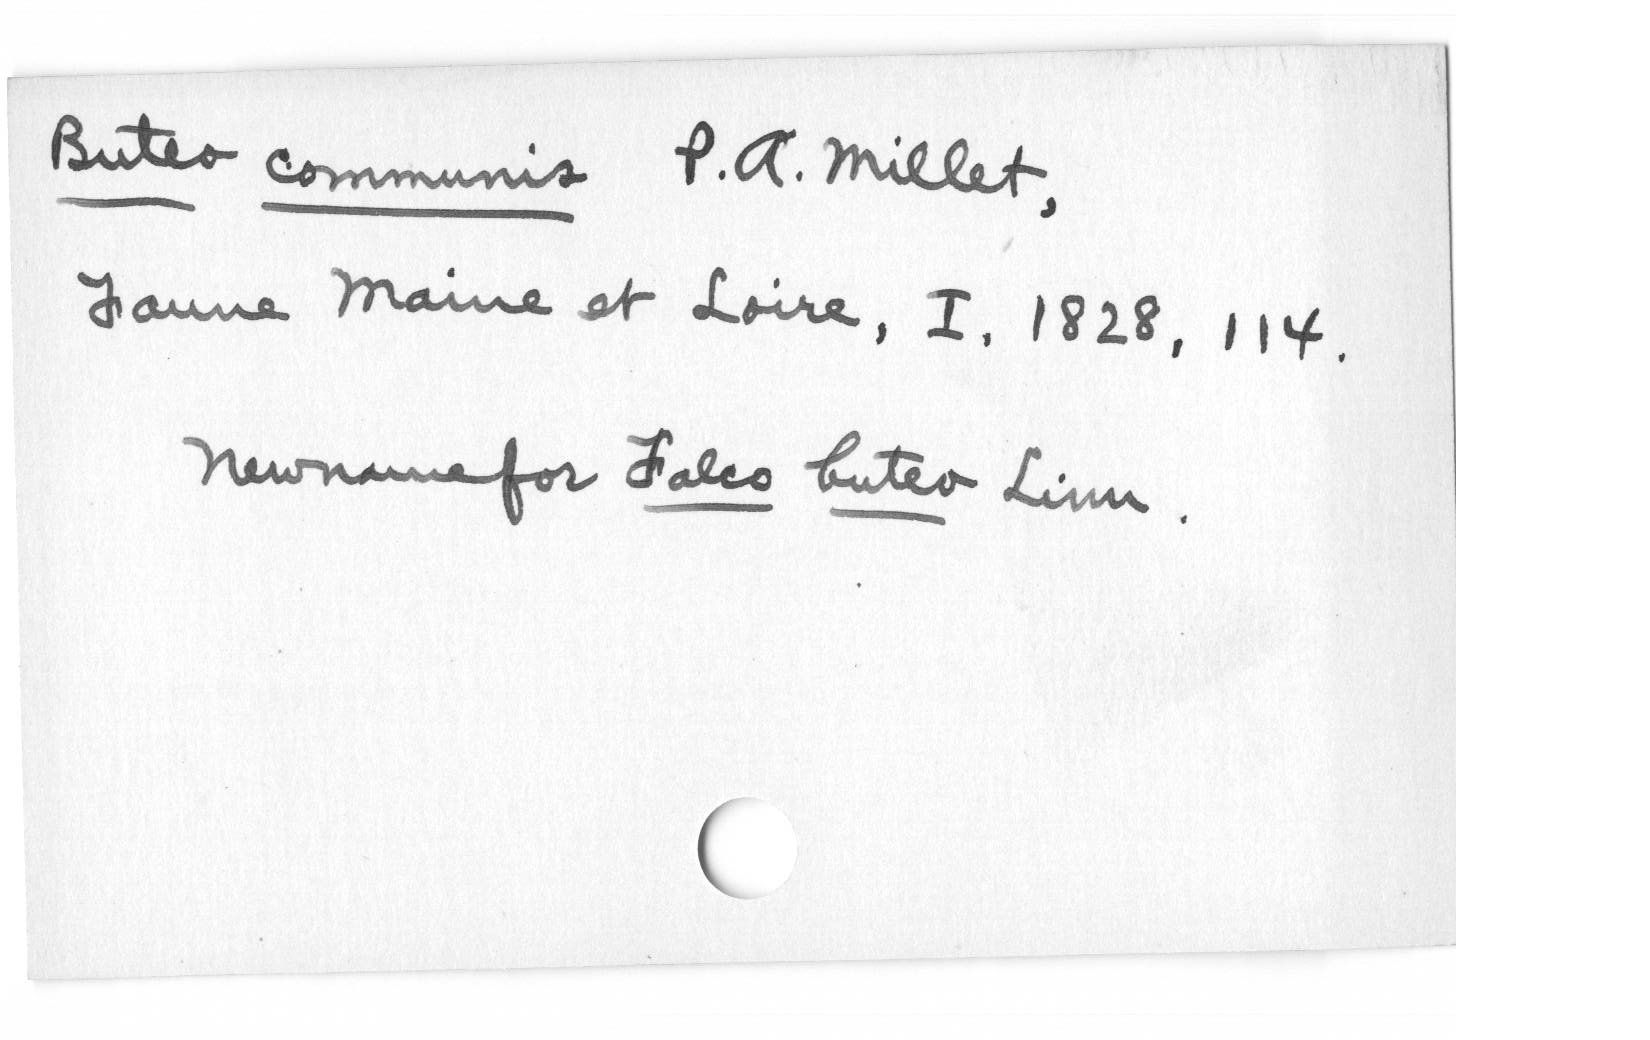 Buteo communis P.A. Millet,
Faune Maine et Loire, I, 1828, 114.
New name for Falco buteo Linn.